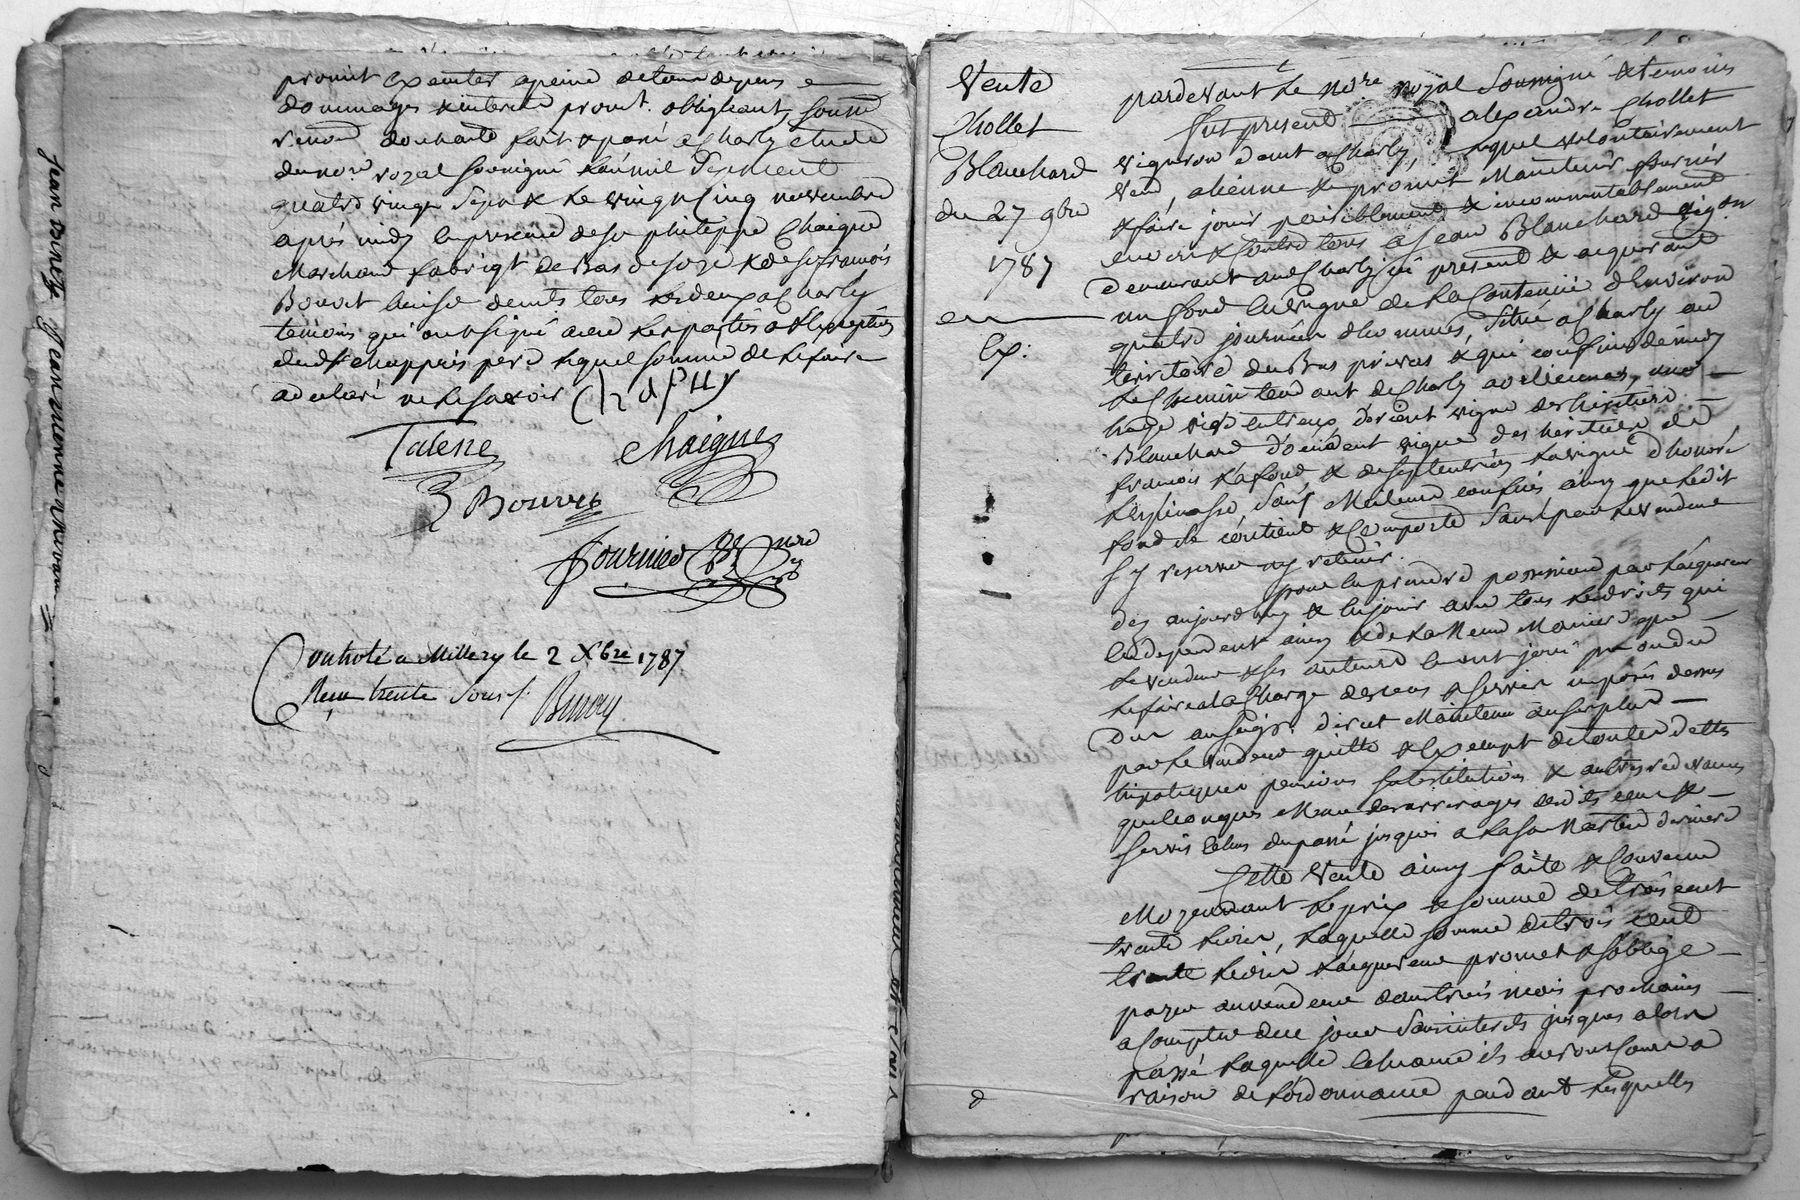 promet exemter a peine de tous depens
dommages & interets promt. obligeant, soum
renonc dont acte fait & passé a Charly etude
du nore royal soussigné l'an mil sept cent
quatre vingt sept & le vingt cinq novembre
après midy en presence de sr philippe Chaigne
Marchand fabriqt de Bas de soye & de sr françois
Bouvet huissr demts tous les deux a Charly
temoins qui ont signé avec les parties a l'exception
dud. Chappuis pere lequel sommé de le faire
a declaré ne le savoir Chapuy
Talene Chaigne
Bouvet
fournier nore
Controlé a Millery le 2 Xbre 1787
Reçu trente sous
Vente
Chollet
Blanchard
du 27 9bre
1787
en
Ex:
pardevant le nore royal soussigné & temoins
fut present alexandre Chollet
vigneron demt a Charly, lequel volontairement
vend, aliene & promet maintenir fournir
& faire jouir paisiblement & incommutablement
envers & contre tous a Jean Blanchard vigon
demeurant aud Charly ici present & acquerant
un fond en vigne de la contenue d'environ
quatre journées d'hommes, situé a Charly au
territoire du Bas privas & qui confine de midy
le chemin tendant de Charly a
haye vive entre eux, d'orient vigne des heritiers
Blanchard d'occident vigne des heritiers de
françois Lafond & de septentrion la vigne d'honoré
Lespinasse, sauf meilleurs confins ainsy que ledit
fond se contient & comporte sans par le vendeur
s'y reserver ny retenir.
pour en prendre possession par l'acquereur
des aujourd'huy & en jouir avec tous les droits qui
en dependent ainsy & de la meme maniere que
le vendeur & ses auteurs en ont joui pu ou du
le faire a la charge des cens & servis imposés dessus
dus au seigr. direct maintenu au surplus
par le vendeur quitte & exempt de toutes dettes
hipotheques pensions substitutions & autres redevances
quelconques meme des arrerages desdits cens &
servis echus du passé jusques a la st Martin derniere
Cette vente ainsy faite & convenue
Moyennant le prix & somme de trois cent
trente livres, laquelle somme de trois cent
trente livres l'acquereur promet & s'oblige
payer au vendeur dans trois mois prochains
a compter de ce jour sans interets jusques alors
passé laquelle echeance ils auront cours a
raison de l'ordonnance pendant lesquelles